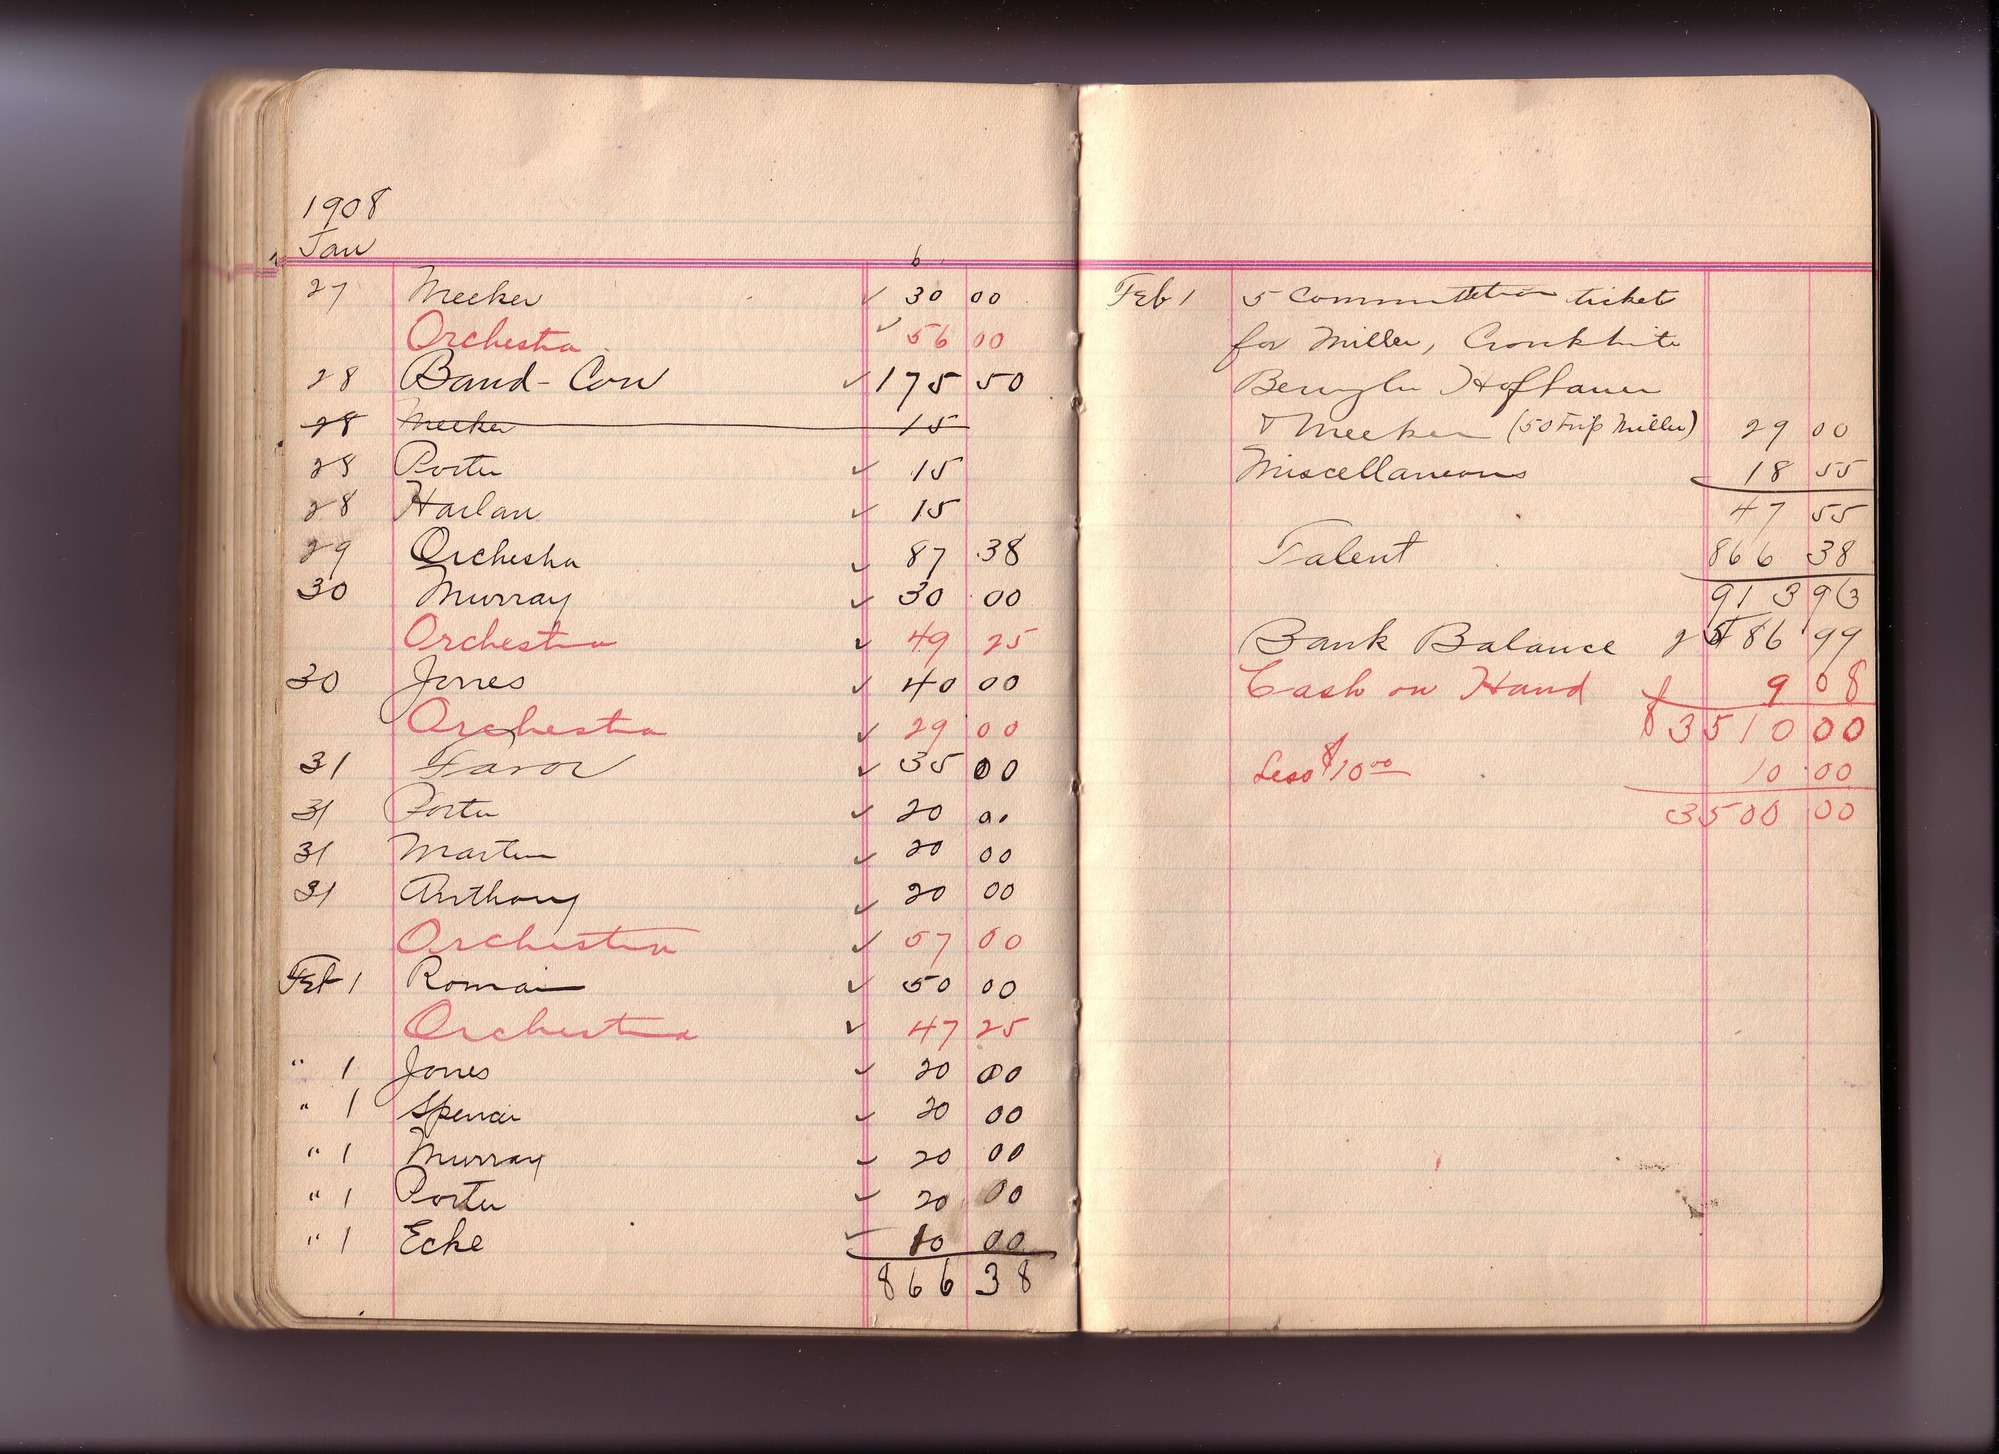 1908
Jan
6
27 Meeker ✓ 30 00
Orchestra ✓ 56 00
28 Band-Con ✓ 175 50
28 Meeker 15
28 Porter ✓ 15
28 Harlan ✓ 15
29 Orchestra ✓ 87 38
30 Murray ✓ 30 00
Orchestra ✓ 49 25
30 Jones ✓ 40 00
Orchestra ✓ 29 00
31 Favor ✓ 35 00
31 Porter ✓ 20 00
31 Martin ✓ 20 00
31 Anthony ✓ 20 00
Orchestra ✓ 57 00
Feb 1 Romain ✓ 50 00
Orchestra ✓ 47 25
" 1 Jones ✓ 20 00
" 1 Spencer ✓ 20 00
" 1 Murray ✓ 20 00
" 1 Porter ✓ 20 00
" 1 Ecke ✓ 10 00
866 38
Feb 1 5 Commutation ticket
for Miller, Cronkhite
Hoffauer
& Meeker (50 trip Miller) 29 00
Miscellaneous 18 55
47 55
Talent 866 38
913 93
Bank Balance 2586 99
Cash on Hand 9 08
$3510 00
Less $10 00 10 00
3500 00